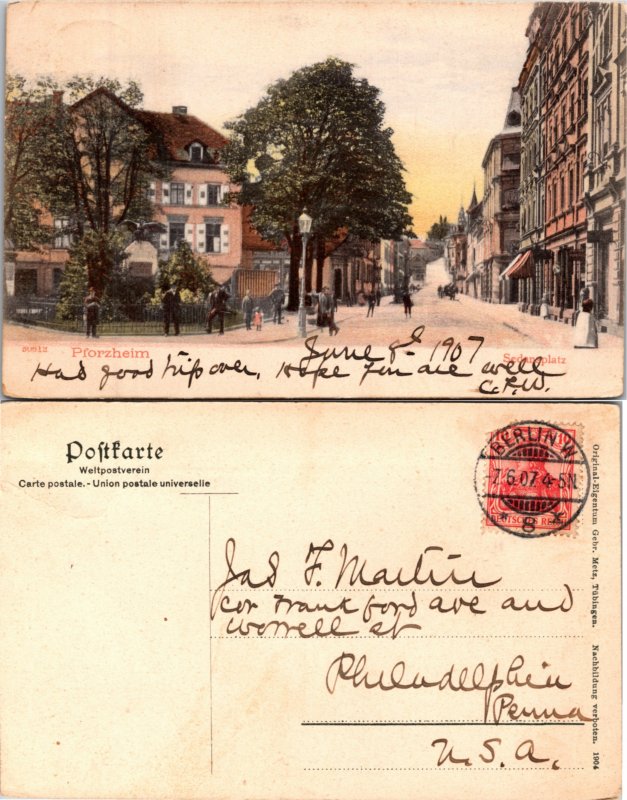 June 8 1907
30512 Pforzheim Sedansplatz
Had good trip over. Hope you are well
C.F.W.
Postkarte
Weltpostverein
Carte postale. - Union postale universelle
BERLIN W
7.6.07. 4-5N
* 8 *
DEUTSCHES REICH
Jas F. Martin
Cor Frankford ave and
Worrell st
Philadelphia
Penna
U.S.A.
Original-Eigentum Gebr. Metz, Tübingen. Nachbildung verboten. 1904